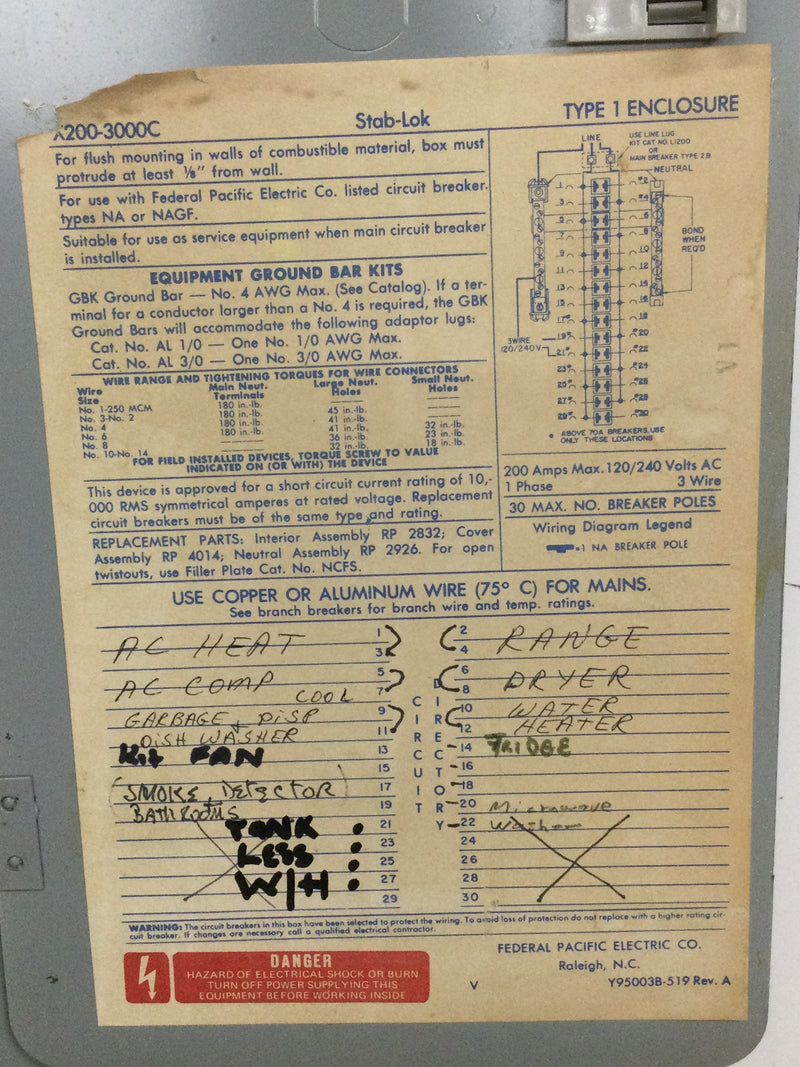 X200-3000C
Stab-Lok
TYPE 1 ENCLOSURE
For flush mounting in walls of combustible material, box must
protrude at least 1/8" from wall.
For use with Federal Pacific Electric Co. listed circuit breaker
types NA or NAGF.
Suitable for use as service equipment when main circuit breaker
is installed.
EQUIPMENT GROUND BAR KITS
GBK Ground Bar — No. 4 AWG Max. (See Catalog). If a ter-
minal for a conductor larger than a No. 4 is required, the GBK
Ground Bars will accommodate the following adaptor lugs:
Cat. No. AL 1/0 — One No. 1/0 AWG Max.
Cat. No. AL 3/0 — One No. 3/0 AWG Max.
WIRE RANGE AND TIGHTENING TORQUES FOR WIRE CONNECTORS
Wire Size Main Neut. Terminals Large Neut. Holes Small Neut. Holes
No. 1-250 MCM 180 in.-lb. ———
No. 3-No. 2 180 in.-lb. 45 in.-lb. ———
No. 4 180 in.-lb. 41 in.-lb. ———
No. 6 180 in.-lb. 41 in.-lb. 32 in.-lb.
No. 8 ——— 36 in.-lb. 23 in.-lb.
No. 10-No. 14 ——— 32 in.-lb. 18 in.-lb.
FOR FIELD INSTALLED DEVICES, TORQUE SCREW TO VALUE
INDICATED ON (OR WITH) THE DEVICE
This device is approved for a short circuit current rating of 10,-
000 RMS symmetrical amperes at rated voltage. Replacement
circuit breakers must be of the same type and rating.
REPLACEMENT PARTS: Interior Assembly RP 2832; Cover
Assembly RP 4014; Neutral Assembly RP 2926. For open
twistouts, use Filler Plate Cat. No. NCFS.
LINE
USE LINE LUG
KIT CAT NO. L1200
OR
MAIN BREAKER TYPE 2B
NEUTRAL
BOND
WHEN
REQ'D
3WIRE
120/240V
1 *2
3 *4
5 6
7 8
9 10
11 12
13 14
15 16
17 18
19 20
21 22
23 24
25 26
27 28
29 30
* ABOVE 70A BREAKERS, USE
ONLY THESE LOCATIONS
200 Amps Max. 120/240 Volts AC
1 Phase 3 Wire
30 MAX. NO. BREAKER POLES
Wiring Diagram Legend
=1 NA BREAKER POLE
USE COPPER OR ALUMINUM WIRE (75° C) FOR MAINS.
See branch breakers for branch wire and temp. ratings.
CIRCUIT
DIRECTORY
AC HEAT 1 2 RANGE
3 4
AC COMP 5 6 DRYER
COOL 7 8
GARBAGE + DISP 9 10 WATER
DISH WASHER 11 12 HEATER
Kit FAN 13 14 FRIDGE
15 16
(SMOKE, DETECTOR) 17 18
BATHROOMS 19 20 Microwave
TANK 21 22 Washer
23 24
LESS 25 26
W/H 27 28
29 30
WARNING: The circuit breakers in this box have been selected to protect the wiring. To avoid loss of protection do not replace with a higher rating cir-
cuit breaker. If changes are necessary call a qualified electrical contractor.
DANGER
HAZARD OF ELECTRICAL SHOCK OR BURN
TURN OFF POWER SUPPLYING THIS
EQUIPMENT BEFORE WORKING INSIDE
V
FEDERAL PACIFIC ELECTRIC CO.
Raleigh, N.C.
Y95003B-519 Rev. A